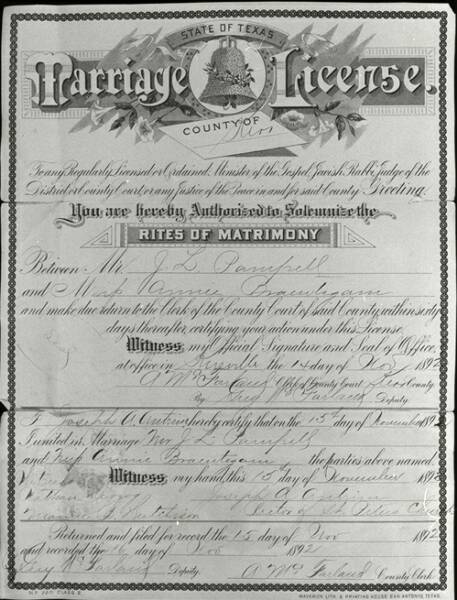 STATE OF TEXAS
Marriage License.
COUNTY OF Kerr
To any Regularly Licensed or Ordained Minister of the Gospel, Jewish Rabbi, Judge of the
District or County Court, or any Justice of the Peace in and for said County Greeting.
You are hereby Authorized to Solemnize the
RITES OF MATRIMONY
Between Mr. J L Pampell
and M Annie Braeutigam
and make due return to the Clerk of the County Court of said County within sixty
days thereafter, certifying your action under this License.
Witness, my Official Signature and Seal of Office,
at office in Kerrville the 14 day of Nov 1892
A McFarland Clerk of County Court Kerr County
By McFarland Deputy.
I Joseph A. hereby certify that on the 15th day of November 1892
I united in Marriage Mr J L Pampell
and Miss Annie Braeutigam the parties above named.
Witness, my hand, this 15 day November 1892
Joseph A.
Rector of St Peters Church
Returned and filed for record the 15 day of Nov 1892
and recorded the 16 day of Nov 1892
McFarland Deputy. A McFarland County Clerk.
MAVERICK LITH. & PRINTING HOUSE SAN ANTONIO, TEXAS.